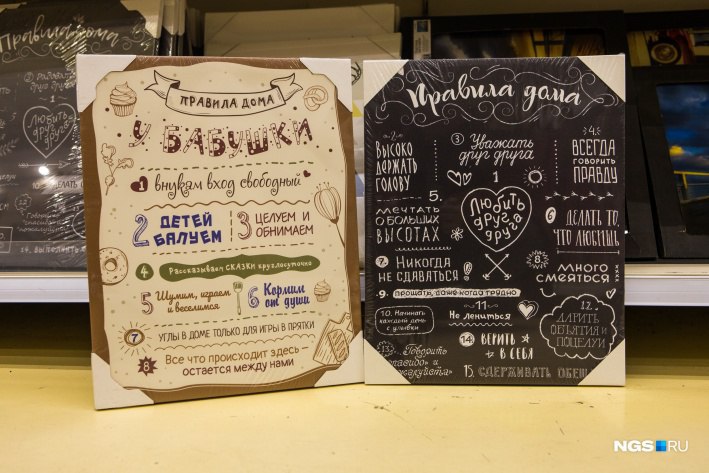 ПРАВИЛА ДОМА
У БАБУШКИ
1 ВНУКАМ ВХОД СВОБОДНЫЙ
2 ДЕТЕЙ
БАЛУЕМ
3 ЦЕЛУЕМ И
ОБНИМАЕМ
4 Рассказываем СКАЗКИ круглосуточно
5 Шумим, играем
и веселимся
6 Кормим
от души
7 УГЛЫ В ДОМЕ ТОЛЬКО ДЛЯ ИГРЫ В ПРЯТКИ
8 Все что происходит здесь –
остается между нами
Правила дома
2
ВЫСОКО
ДЕРЖАТЬ
ГОЛОВУ
3 Уважать
друг друга
4.
ВСЕГДА
ГОВОРИТЬ
ПРАВДУ
1
Любить
друг
друга
5.
МЕЧТАТЬ
О БОЛЬШИХ
ВЫСОТАХ
6 ДЕЛАТЬ ТО,
ЧТО ЛЮБИШЬ
7. НИКОГДА
НЕ СДАВАТЬСЯ!
8.
МНОГО
СМЕЯТЬСЯ
9. ПРОЩАТЬ, ДАЖЕ КОГДА ТРУДНО
10. Начинать
каждый день
с улыбки
11
Не лениться
12.
ДАРИТЬ
ОБЪЯТИЯ И
ПОЦЕЛУИ
13. Говорить
«спасибо» и
«пожалуйста»
14. ВЕРИТЬ
В СЕБЯ
15. СДЕРЖИВАТЬ ОБЕЩ
Правила дома
Любить
друг
друга
NGS.RU